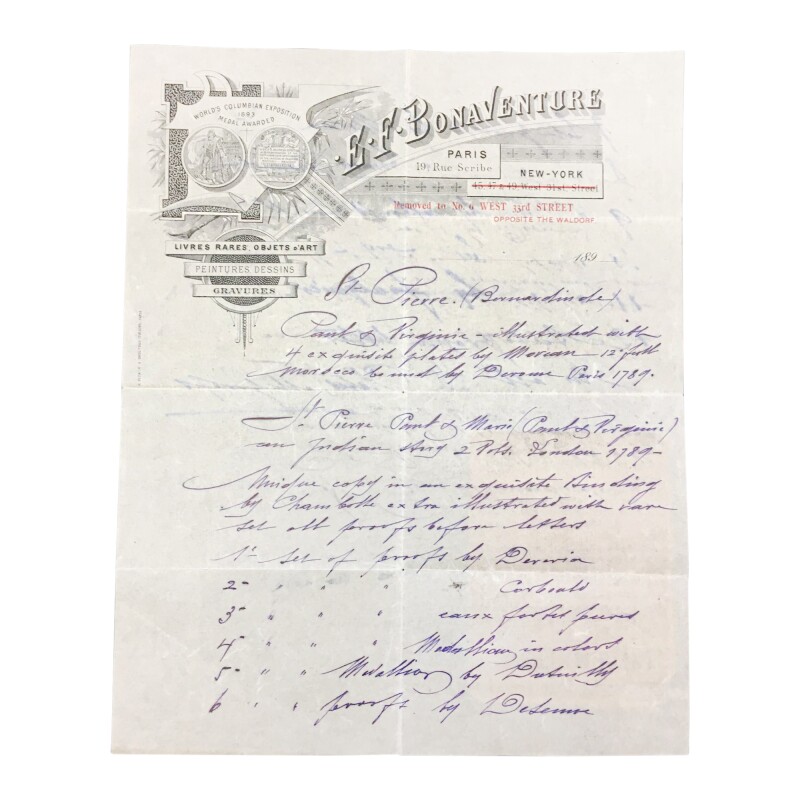 WORLD'S COLUMBIAN EXPOSITION
1893
MEDAL AWARDED
E. F. BONAVENTURE
PARIS
19, Rue Scribe
NEW-YORK
45, 47 & 49 West 31st Street
Removed to No. 6 WEST 33rd STREET
OPPOSITE THE WALDORF
LIVRES RARES, OBJETS d'ART
PEINTURES DESSINS
GRAVURES
189
St Pierre. (Bernardin de)
Paul & Virginie - illustrated with
4 exquisite plates by Moreau 12º full
morocco bound by Derome Paris 1789.
St Pierre Paul & Marie (Paul & Virginie)
an Indian Story 2 Vols. London 1789-
Unique copy in an exquisite Binding
by Chambolle extra illustrated with rare
set all proofs before letters
1- set of proofs by Deveria
2- " " " Corbould
3- " " " eaux fortes pures
4- " " " Medallion in colors
5- " " Medallion by
6 " " proofs by Desenne